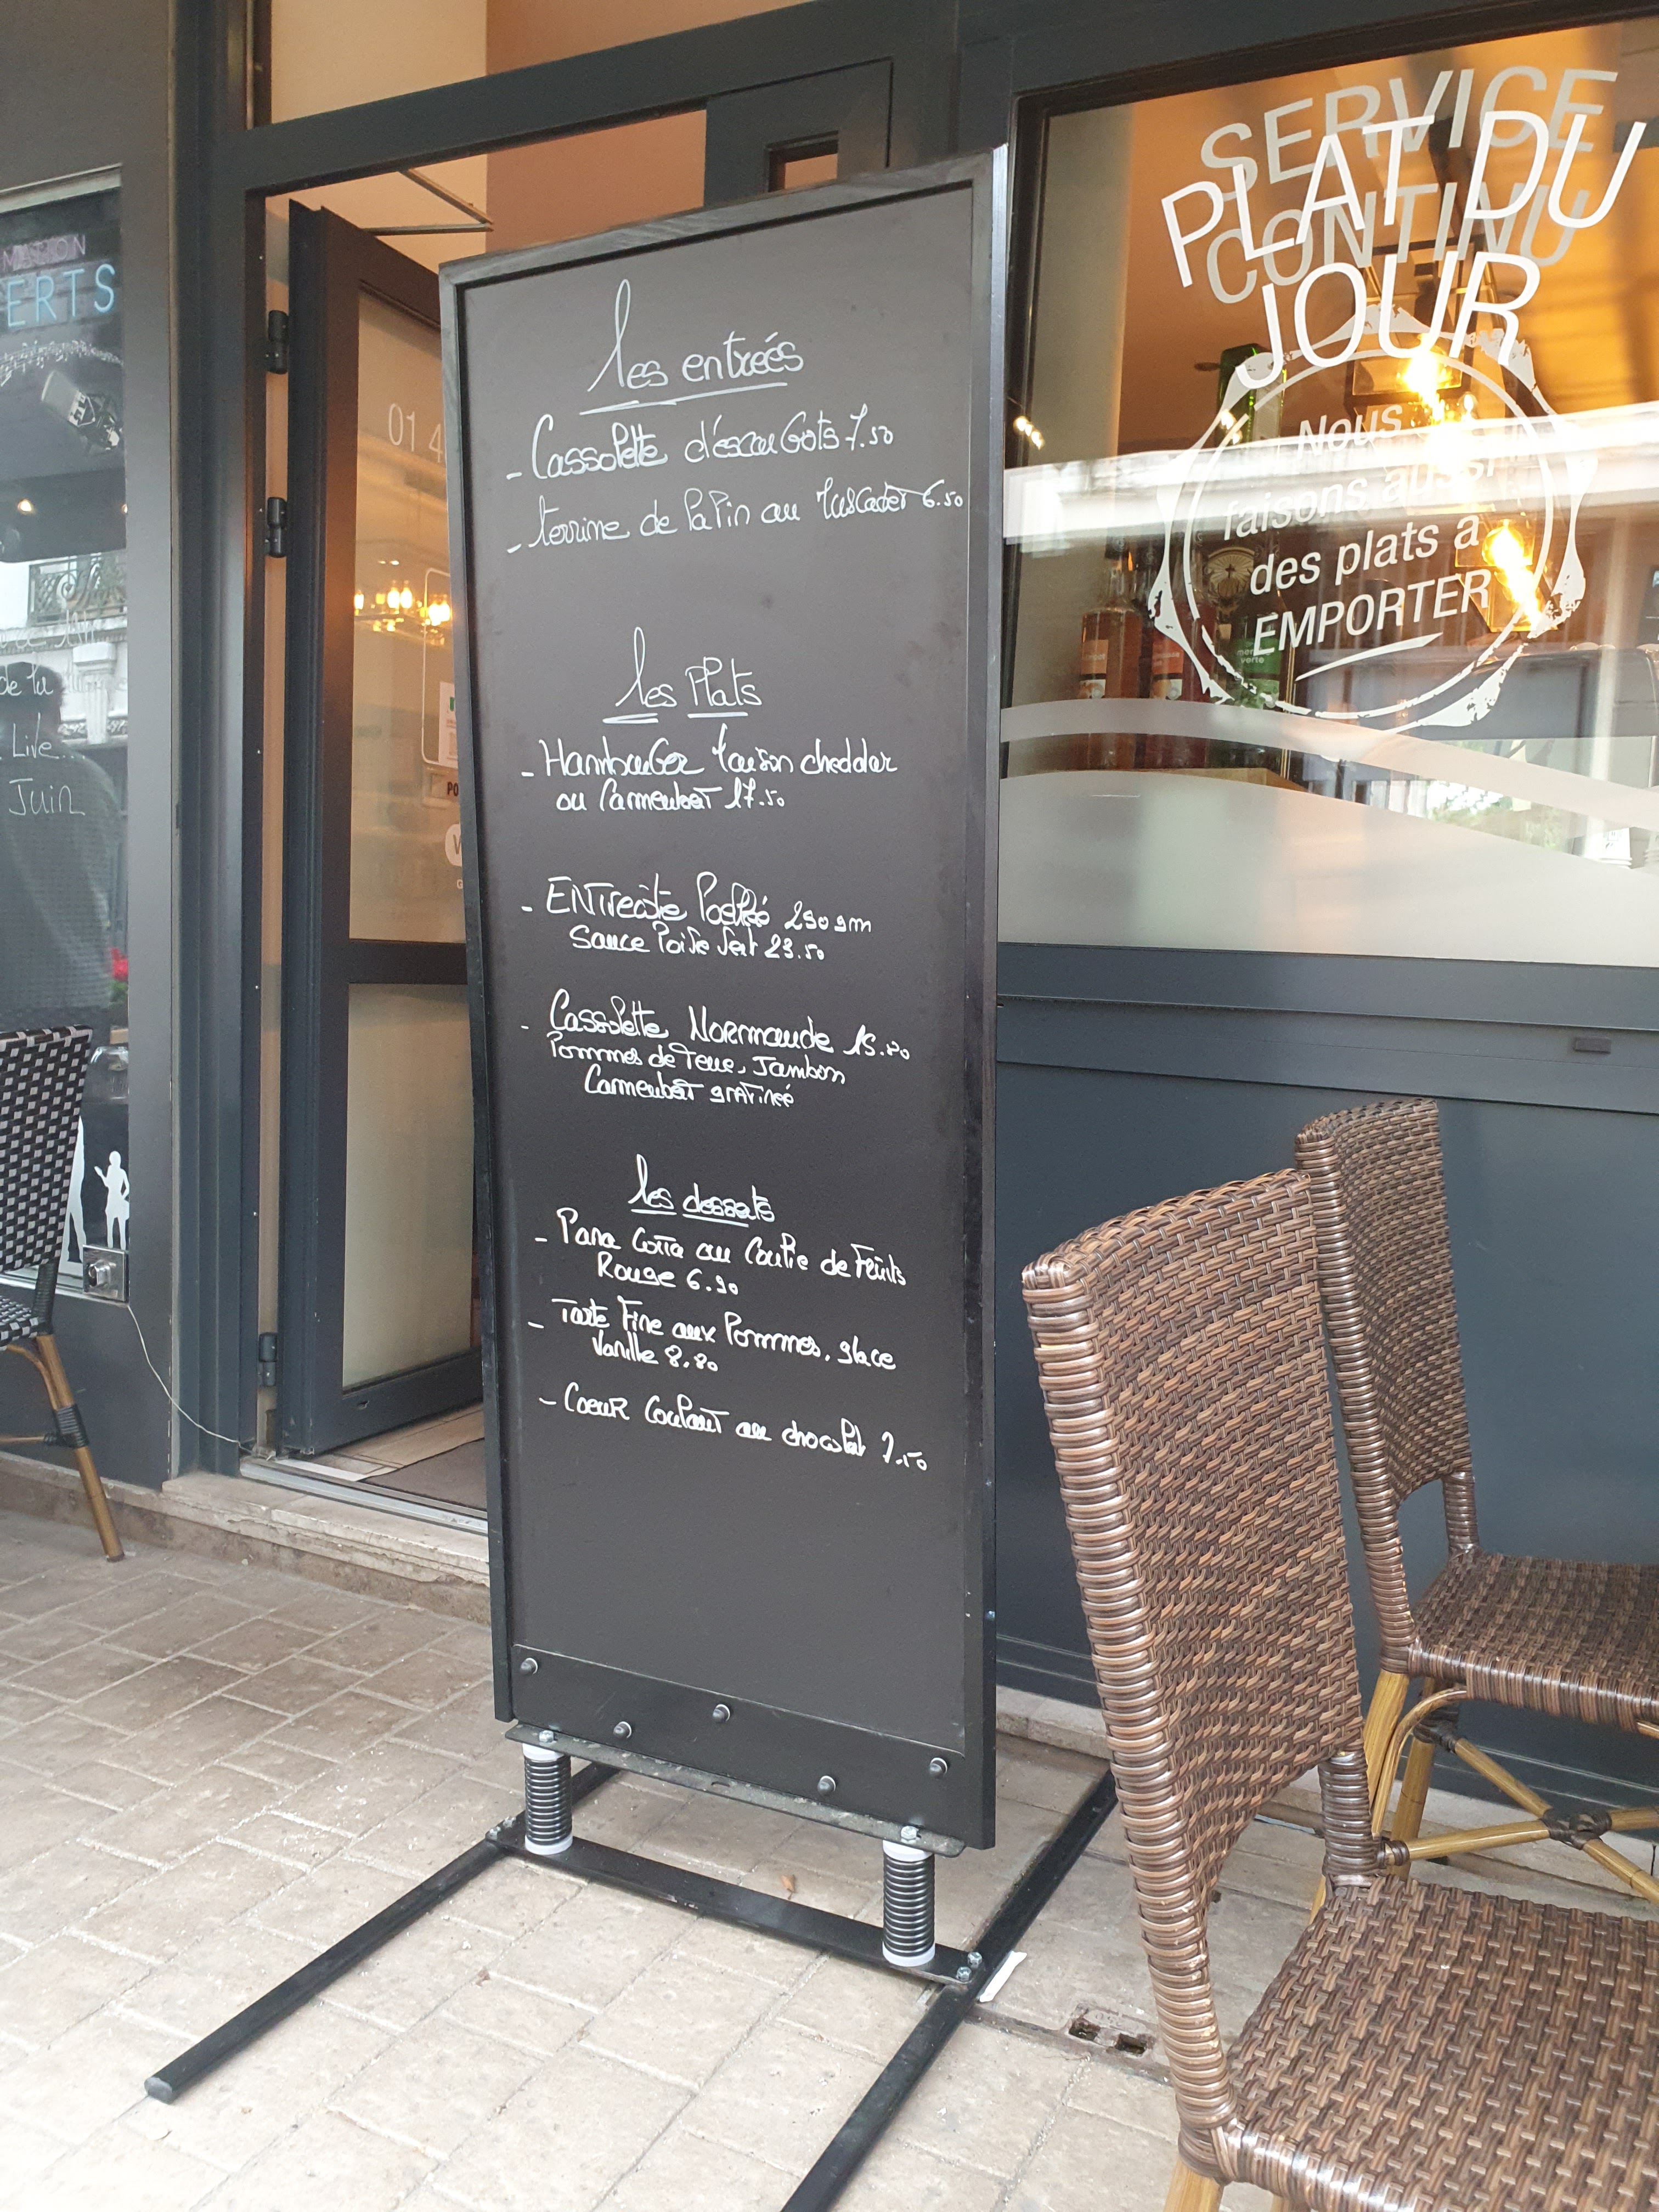 les entrées
- Cassolette d'éscargots 7.50
- terrine de lapin au Muscadet 6.50
les Plats
- Hamburger Maison cheddar
ou Camembert 17.50
- ENTrecôte Poêlée 290 gm
Sauce Poivre Vert 23.50
- Cassolette Normande
Pommes de Terre, Jambon
Camembert gratinée
les desserts
- Pana Cotta au Coulie de Fruits
Rouge 6.90
- Tarte Fine aux Pommes, glace
Vanille 8.80
- Coeur Coulant au chocolat 7.50
SERVICE
CONTINU
PLAT DU
JOUR
Nous
faisons aussi
des plats a
EMPORTER
menthe
verte
ERTS
de la
Live...
Juin
01 4